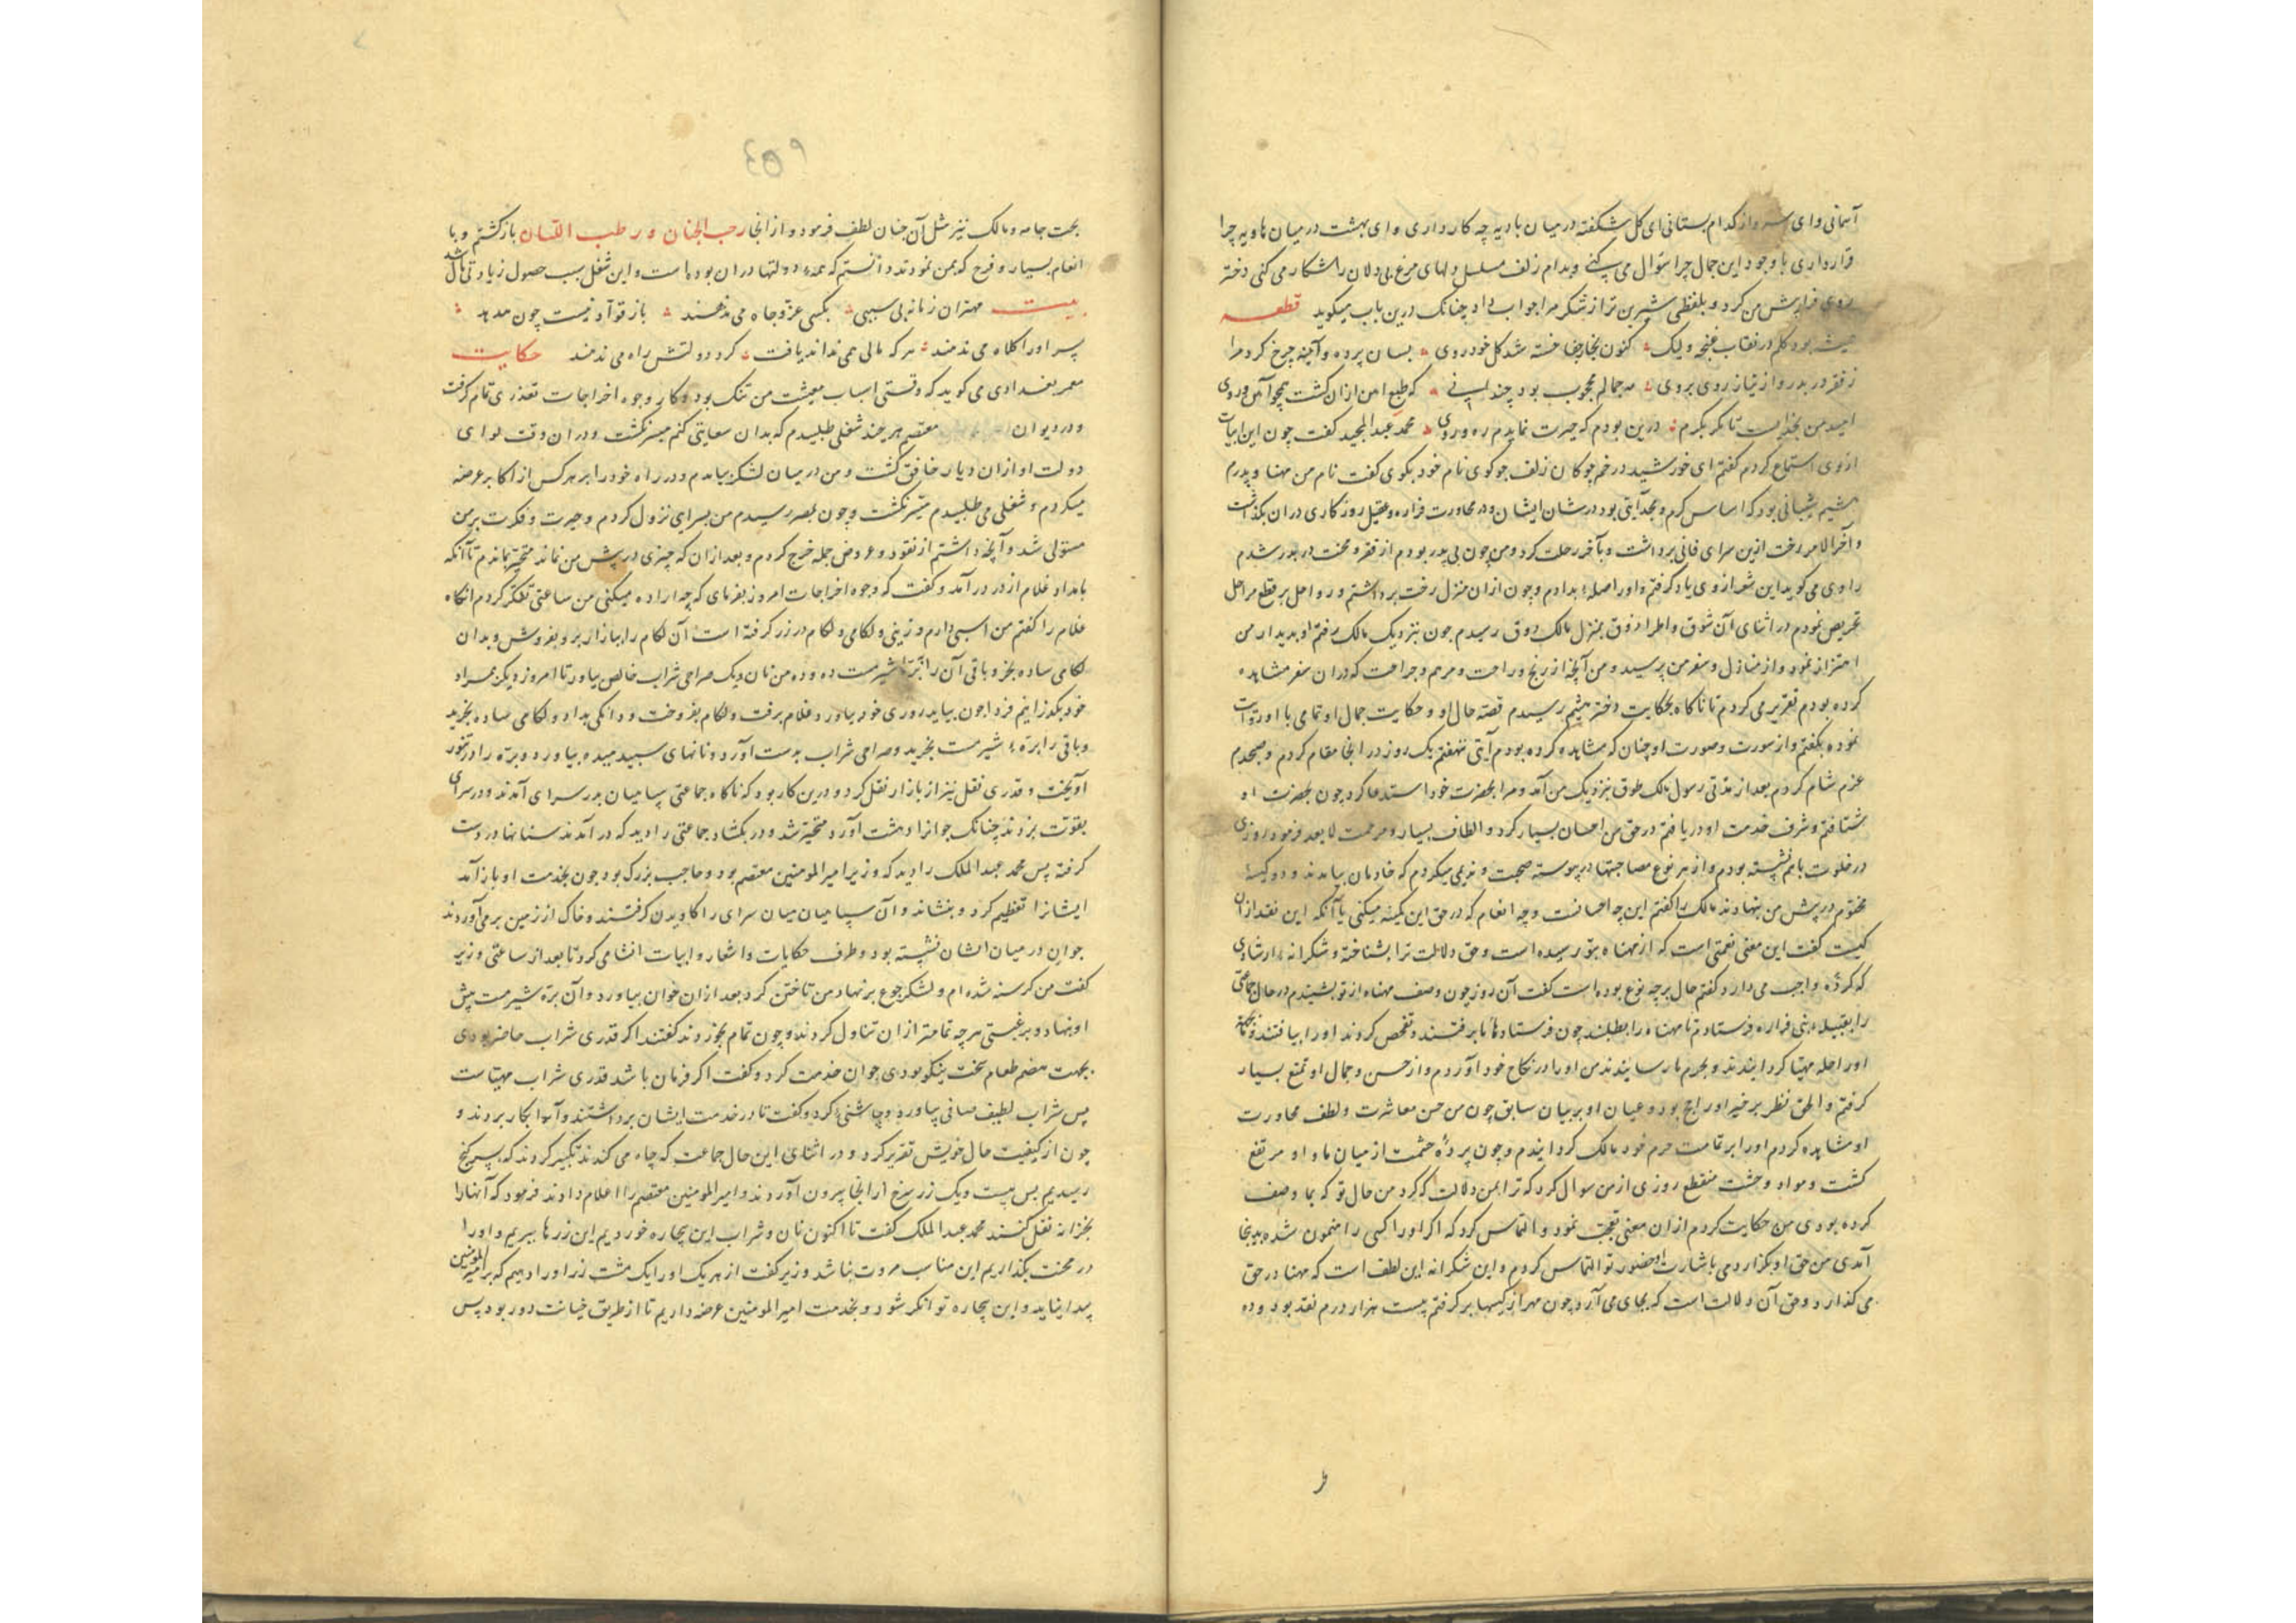 آسمانی وای سرو از کدام بستانی ای کل شکفته در میان بادیه چه کار داری وای بهشت در میان هاویه چرا
قرار داری با وجود این جمال چرا سؤال می کنی و بدام زلف مسلسل دلهای مرغ بی دلان را شکار می کنی دختر
روی فرا پیش من کرد و بلفظی شیرین تر از شکر مرا جواب داد چنانک درین باب میکوید قطعه
بود کلم در نقاب غنچه ولیک کنون بخار جفا خسته شد کل خودروی بسان پرده و آینه چرخ کرد مرا
ز فقر در بدر و از نیاز روی بروی جمالم محجوب بود چند کشت همچو روی
امید من تا نکر بکرم درین بودم که حیرت نمایدم ره وروی محمد عبد المجید کفت چون این ابیات
ازوی استماع کردم کفتم ای خورشید در خم چوکان زلف چو کوی نام خود بکوی کفت نام من مهنا و پدرم
هیثم شیبانی بود که اساس کرم و مجد آیتی بود در شان ایشان و در مجاورت فزاره و عقیل روزکاری دران بکذاشت
و آخر الامر رخت ازین سرای فانی برداشت و بآخر رحلت کرد و من چون بی پدر بودم از فقر و محنت در بدر شدم
راوی می کوید این شعر از وی یاد کرفتم و اورا صلهٔ بدادم و چون ازان منزل رخت برداشتم و رواحل بر قطع مراحل
تحریص نمودم در اثنای آن شوق و اطراد ذوق بمنزل مالک طوق رسیدم چون نزدیک مالک رفتم او بدیدار من
اهتزاز نمود و از منازل و سفر من پرسید و من آنچه از رنج و راحت و مرهم و جراحت که دران سفر مشاهده
کرده بودم تقریر می کردم تا ناکاه بحکایت دختر هیثم رسیدم قصه حال او و حکایت جمال او تمامی با او
نموده بکفتم و از سورت و صورت او چنان که مشاهده کرده بودم آیتی ننهفتم یک روز در انجا مقام کردم و صبحدم
عزم شام کردم بعد از مدتی رسول مالک طوق بنزدیک من آمد و مرا بحضرت خود استدعا کرد چون بحضرت او
شتافتم و شرف خدمت او دریافتم در حق من احسان بسیار کرد و الطاف بسیار و مرحمت لا یعد فرمود روزی
در خلوت باهم نشسته بودم و از هر نوع مصاحبتها در پیوسته صحبت و ندیمی میکردم که خادمان بیامدند و دو کیسهٔ
مختوم در پیش من بنهادند مالک را کفتم این چه احسانست و چه انعام که در حق این کمینه میکنی یا آنکه این نقد ازان
کیست کفت این معنی نعمتی است که از مهناه بتو رسیده است و حق دلالت ترا بشناخته و شکرانه ارشادی
که کردهٔ واجب می دارد کفتم حال بر چه نوع بوده است کفت آن روز چون وصف مهناه از تو بشنیدم در حال جماعتی
را بقبیله بنی فزاره فرستادم تا مهناه را بطلبند چون فرستادها برفتند و تفحص کردند او را بیافتند
اورا حله مهیا کردانیدند و بحرم ما رسانیدند من اورا در نکاح خود آوردم و از حسن و جمال او تمتع بسیار
کرفتم و الحق نظر بر خبر او راجح بود و عیان او بر بیان سابق چون من حسن معاشرت و لطف محاورت
او مشاهده کردم اورا بر تمامت حرم خود مالک کردانیدم و چون پردهٔ حشمت از میان ما و او مرتفع
کشت و مواد وحشت منقطع روزی از من سوال کرد که ترا بمن دلالت که کرد من حال تو که بما وصف
کرده بودی من حکایت کردم ازان معنی تعجب نمود و التماس کرد که اکر اورا کسی راهنمون شده بدینجا
آمدی من حق او بکزاردمی باشارت او حضور تو التماس کردم و این شکرانه این لطف است که مهنا در حق
می کذارد و حق آن دلالت است که بجای می آرد چون مهر از کیسها بر کرفتم بیست هزار درم نقد بود و ده
۶۵۳
بخت جامه و مالک نیز مثل آن چنان لطف فرمود و از انجا رحب الجنان و رطب اللسان بازکشتم و با
انعام بسیار و فرح که بمن نمودند دانستم که همهٔ دولتها دران بوده است و این شغل سبب حصول زیادتی مال شد
بیت مهتران زمانه بی سببی بکسی عز و جاه می ندهند باز قوادنیست چون مدبد
پسر اورا کلاه می ندهند هر که مالی همی نداند یافت کرد دولتش راه می ندهند حکایت
معمر بغدادی می کوید که وقتی اسباب معیشت من تنک بود و کار وجوه اخراجات تعذری تمام کرفت
و در دیوان معتصم هر چند شغلی طلبیدم که بدان سعایتی کنم میسر نکشت و دران وقت لوای
دولت او ازان دیار خافق کشت و من در میان لشکر بیامدم و در راه خود را بر هر کس از اکابر عرضه
میکردم و شغلی می طلبیدم میسر نکشت و چون بمصر رسیدم من بسرای نزول کردم و حیرت و فکرت بر من
مستولی شد و آنچه داشتم از نقود و عروض جمله خرج کردم و بعد ازان که چیزی در پیش من نماند متحیر بماندم تا آنکه
بامداد غلام از در درآمد و کفت که وجوه اخراجات امروز بفرمای که چه اراده میکنی من ساعتی تفکر کردم انکاه
غلام را کفتم من اسبی دارم و زینی و لکامی و لکام در زر کرفته است آن لکام را ببازار بر و بفروش و بدان
لکامی ساده بخر و باقی آن را برّهٔ شیرمست ده و ده من نان و یک صراحی شراب خالص بیاور تا امروز دیکر بمراد
خود بکذرانیم فردا چون بیاید روزی خود بیاورد غلام برفت و لکام بفروخت و دانکی بداد و لکامی ساده بخرید
و باقی را برّهٔ شیرمست بخرید و صراحی شراب بدست آورد و نانهای سپید میده بیاورد و برّه را در تنور
آویخت و قدری نقل نیز از بازار نقل کرد و درین کار بود که ناکاه جماعتی سپاهیان بدر سرای آمدند و در سرای
بقوت بزدند چنانک جوانرا دهشت آورد و متحیر شد و در بکشاد جماعتی را دید که در آمدند سنانها در دست
کرفته پس محمد عبد الملک را دید که وزیر امیر المومنین معتصم بود و حاجب بزرک بود چون بخدمت او باز آمد
ایشانرا تعظیم کرد و بنشاند و آن سپاهیان میان سرای را کاویدن کرفتند و خاک از زمین بر می آوردند
جوان در میان ایشان نشسته بود و طرف حکایات و اشعار و ابیات انشا می کرد تا بعد از ساعتی وزیر
کفت من کرسنه شده ام و لشکر جوع بر نهاد من تاختن کرد بعد ازان خوان بیاورد و آن برّه شیرمست پیش
او بنهاد و برغبتی هر چه تمامتر ازان تناول کردند و چون تمام بخوردند کفتند اکر قدری شراب حاضر بودی
بجهت هضم طعام سخت نیکو بودی جوان خدمت کرد و کفت اکر فرمان باشد قدری شراب مهیاست
پس شراب لطیف صافی بیاورد و چاشنی کرد و کفت تا در خدمت ایشان برداشتند و آنرا بکار بردند و
چون از کیفیت حال خویش تقریر کرد و در اثنای این حال جماعت که چاه می کندند تکبیر کردند که بسر کنج
رسیدیم پس بیست و یک زر سرخ از انجا بیرون آوردند و امیر المومنین معتصم را اعلام دادند فرمود که آنهارا
بخزانه نقل کنند محمد عبد الملک کفت تا اکنون نان و شراب این بیچاره خوردیم این زرها ببریم و اورا
در محنت بکذاریم این مناسب مروت نباشد وزیر کفت از هر یک اورا یک مشت زر اورا دهیم که بر امیر المومنین
پیدا نیاید و این بیچاره توانکر شود و بخدمت امیر المومنین عرضه داریم تا از طریق خیانت دور بود پس